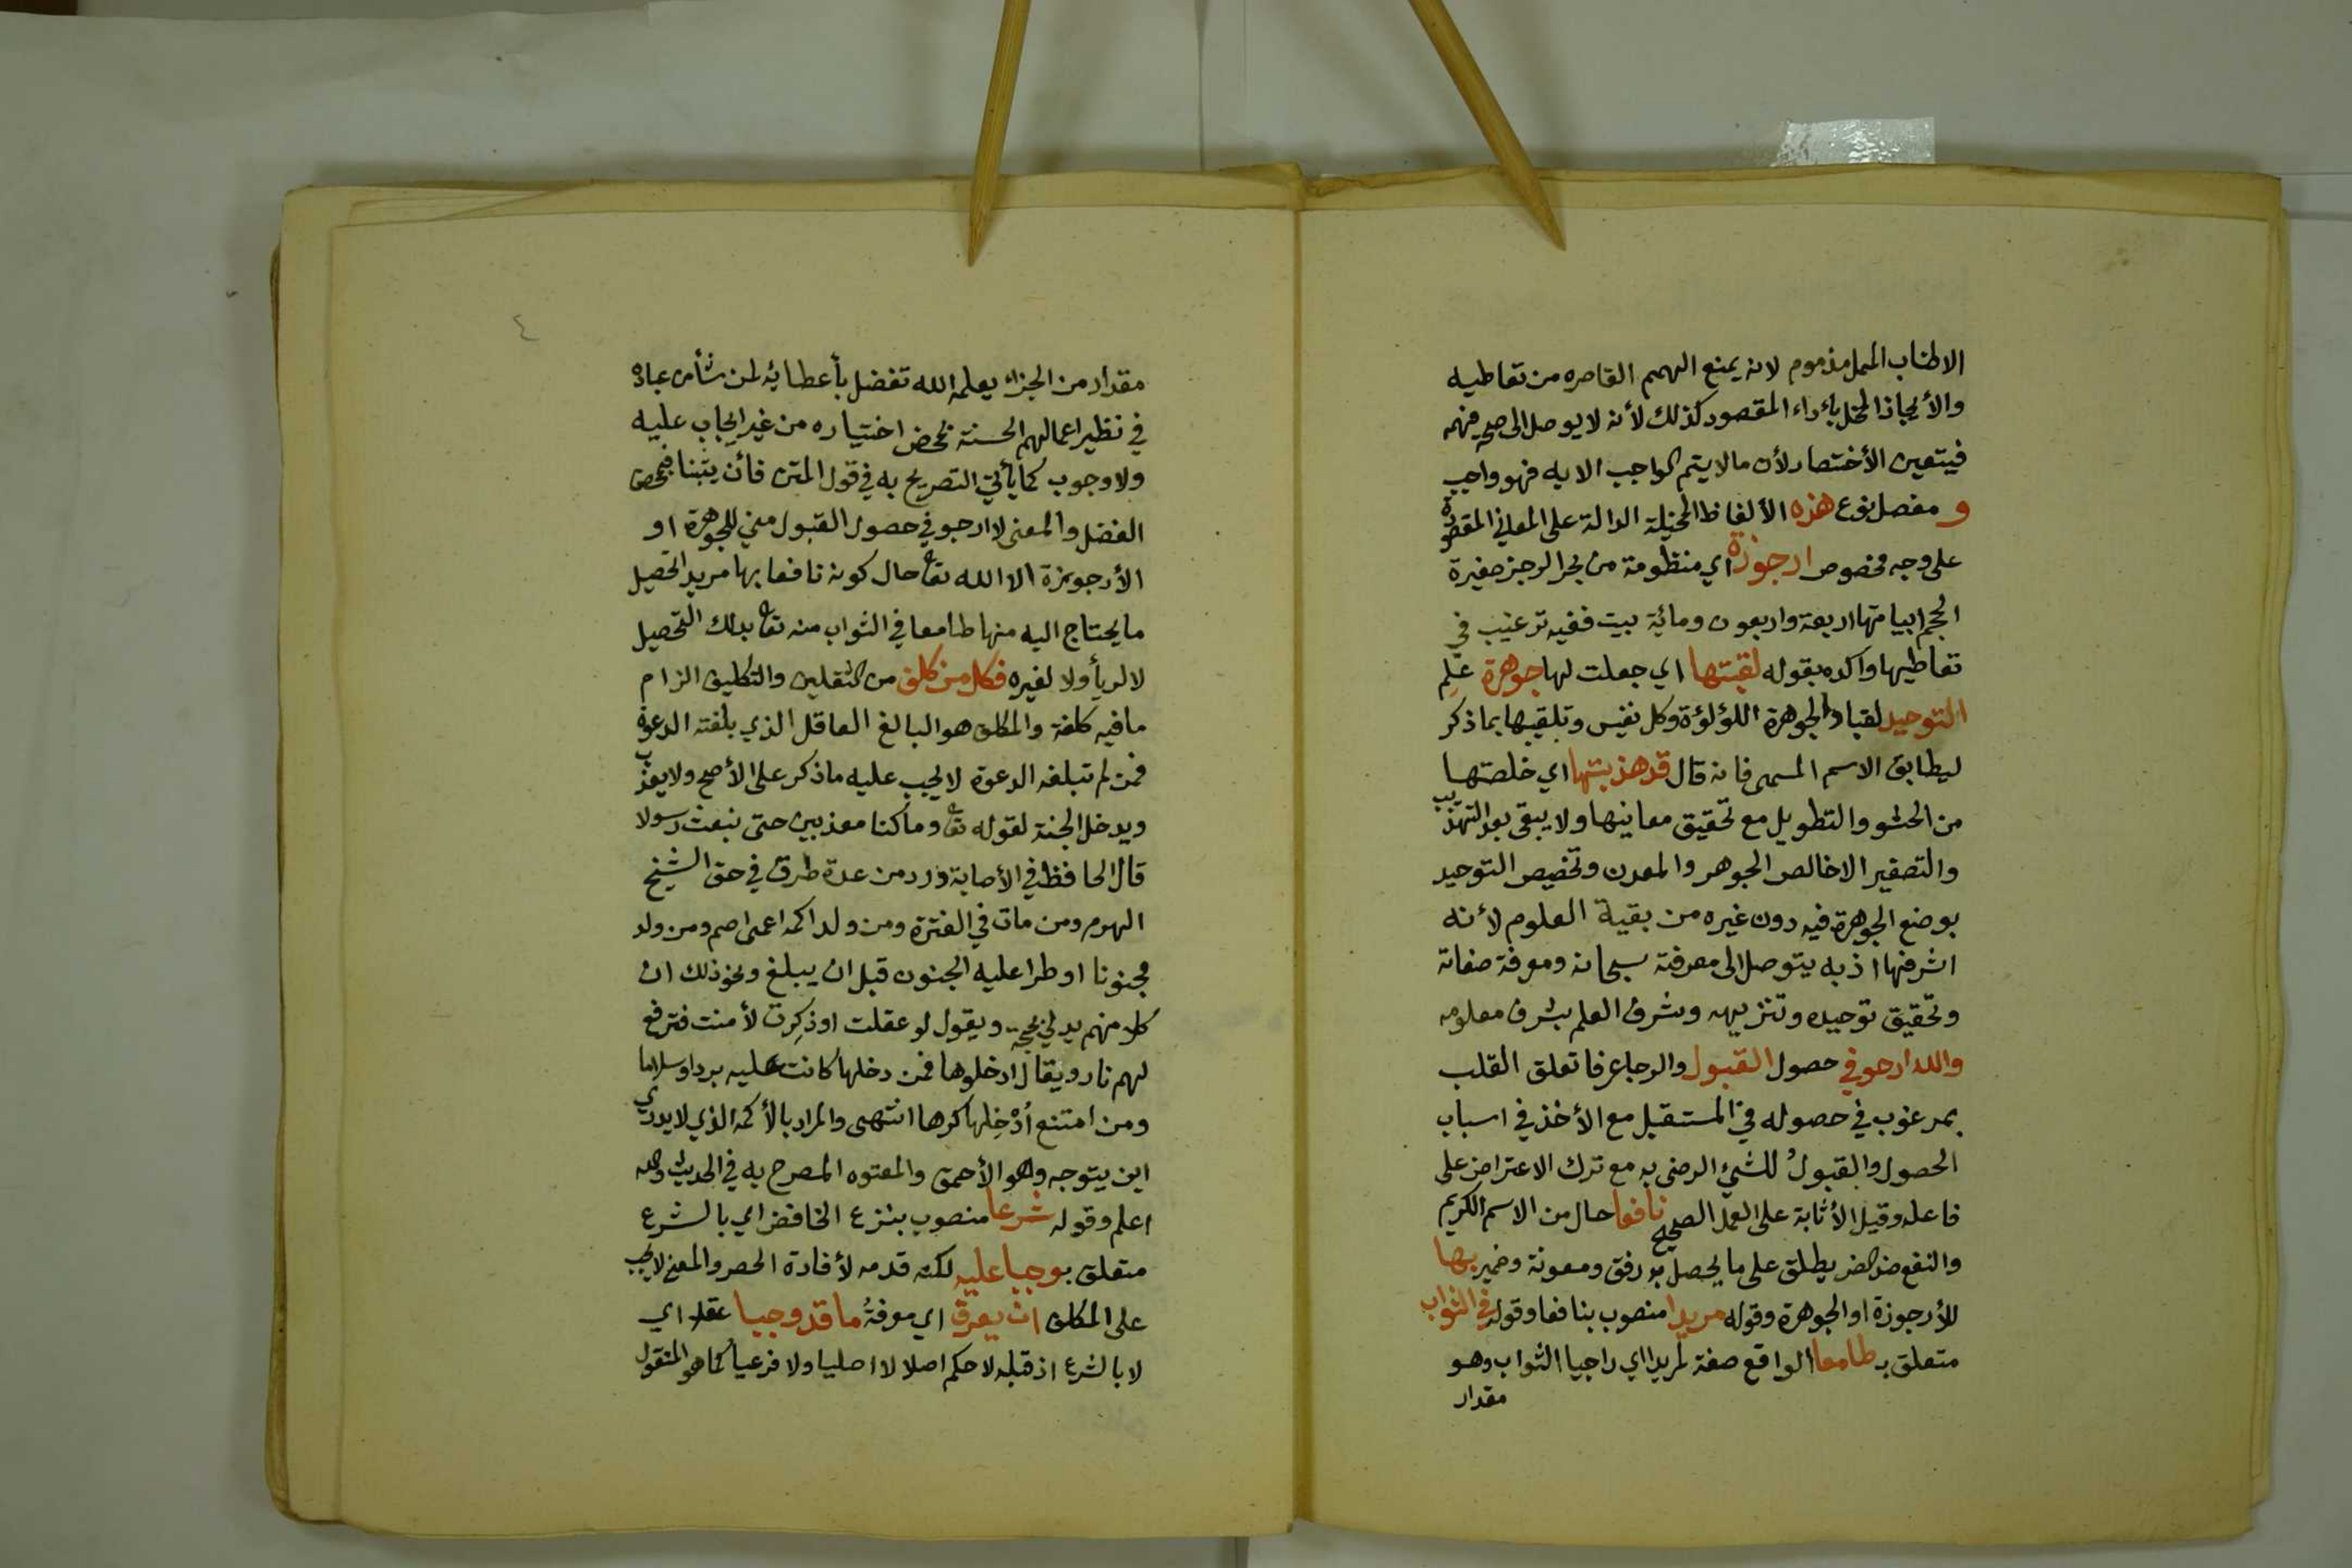 الاطناب الممل مذموم لانه يمنع الهمم القاصره من تعاطيه
والأيجاز المخل بأداء المقصود كذلك لأنه لا يوصل الى صحه فهمه
فيتعين الأختصار لأن ما لا يتم الواجب الا به فهو واجب
و مفصل نوع هذه الألفاظ المخيلة الدالة على المعاني المقصودة
على وجه مخصوص ارجوزة اي منظومة من بحر الرجز صغيرة
الحجم ابياتها اربعة واربعون ومائة بيت ففيه ترغيب في
تعاطيها واكده بقوله لقبتها اي جعلت لها جوهرة علم
التوحيد لقبا والجوهرة اللؤلؤة وكل نفيس وتلقيبها بما ذكر
ليطابق الاسم المسمى فانه قال قد هذبتها اي خلصتها
من الحشو والتطويل مع تحقيق معاينها ولا يبقى بعد التهذيب
والتصغير الا خالص الجوهر والمعدن وتخصيص التوحيد
بوضع الجوهرة فيه دون غيره من بقية العلوم لأنه
اشرفها اذ به يتوصل الى معرفته سبحانه ومعرفة صفاته
وتحقيق توحيده وتنزيهه وشرف العلم بشرف معلومه
والله ارجو في حصول القبول والرجا عرفا تعلق القلب
بمرغوب في حصوله في المستقبل مع الأخذ في اسباب
الحصول والقبول للشيء الرضى به مع ترك الاعتراض على
فاعله وقيل الأثابة على العمل الصحيح نافعا حال من الاسم الكريم
والنفع ضد الضر يطلق على ما يحصل به رفق ومعونة وضمير بها
للأرجوزة او الجوهرة وقوله مريدا منصوب بنافعا وقوله في الثواب
متعلق بـ طامعا الواقع صفة لمريدا اي راجيا الثواب وهو
مقدار
٤
مقدار من الجزاء يعلمه الله تفضل بأعطائه لمن شأ من عباده
في نظير اعمالهم الحسنة بمحض اختياره من غير ايجاب عليه
ولا وجوب كما يأتي التصريح به في قول المتن فأن يثبنا فبمحض
الفضل والمعنى لا ارجو في حصول القبول مني للجوهرة او
الأرجوزة الا الله تعا حال كونه نافعا بها مريد التحصيل
ما يحتاج اليه منها طامعا في الثواب منه تعا بذلك التحصيل
لا لريأ ولا لغيره فكل من كلف من الثقلين والتكليف الزام
ما فيه كلفة والمكلف هو البالغ العاقل الذي بلغته الدعوة
فمن لم تبلغه الدعوة لا يجب عليه ما ذكر على الأصح ولا يعذب
ويدخل الجنة لقوله تعا وما كنا معذبين حتى نبعث رسولا
قال الحافظ في الأصابة ورد من عدة طرق في حق الشيخ
الهرم ومن مات في الفترة ومن ولد اكمه اعمى اصم ومن ولد
مجنونا او طرا عليه الجنون قبل ان يبلغ ونحو ذلك ان
كلا منهم يدلي بحجة ويقول لو عقلت او ذكرت لأمنت فترفع
لهم نار ويقال ادخلوها فمن دخلها كانت عليه بردا وسلاما
ومن امتنع أدخلها كرها انتهى والمراد بالأكمه الذي لا يدري
اين يتوجه وهو الأحمق والمعتوه المصرح به في الحديث والله
اعلم وقوله شرعا منصوب بنزع الخافض اي بالشرع
متعلق بوجبا عليه لكنه قدمه لأفادة الحصر والمعنى لا يجب
على المكلف ان يعرف اي معرفة ما قد وجبا عقلا اي
لا بالشرع اذ قبله لا حكم اصلا لا اصليا ولا فرعيا كما هو المنقول